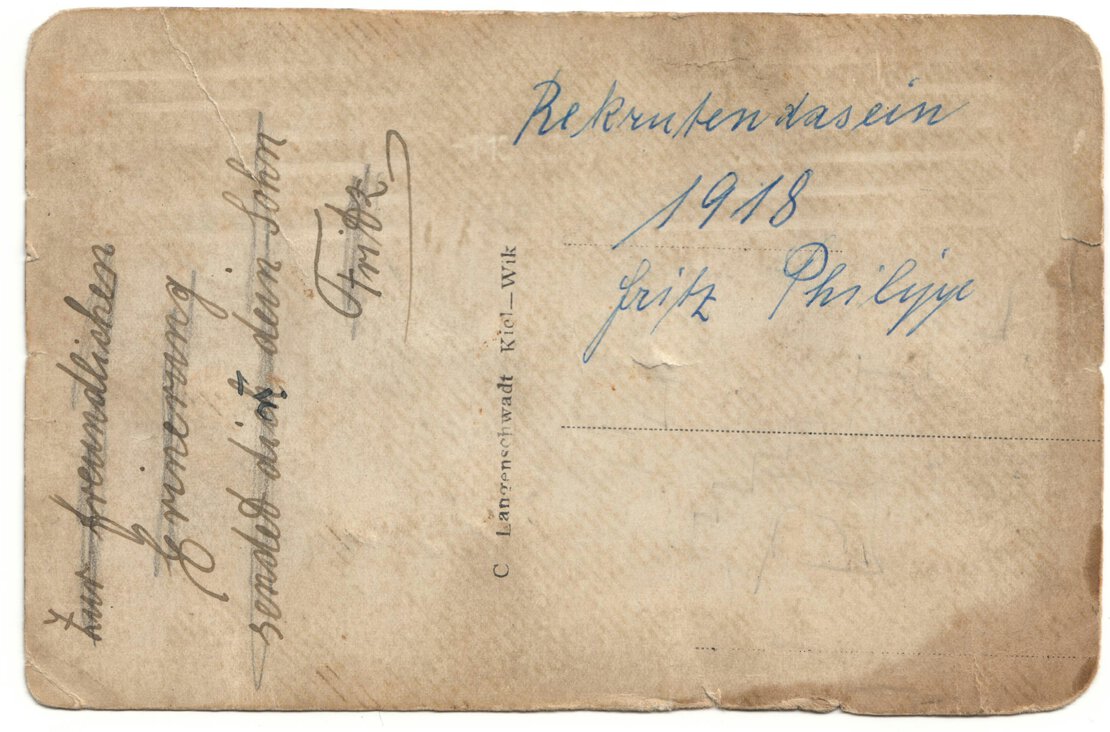 Zur freundlichen
Erinerung
sendet dich dein Sohn
Fritz
C Langenschwadt Kiel—Wik
Rekrutendasein
1918
Fritz Philipp